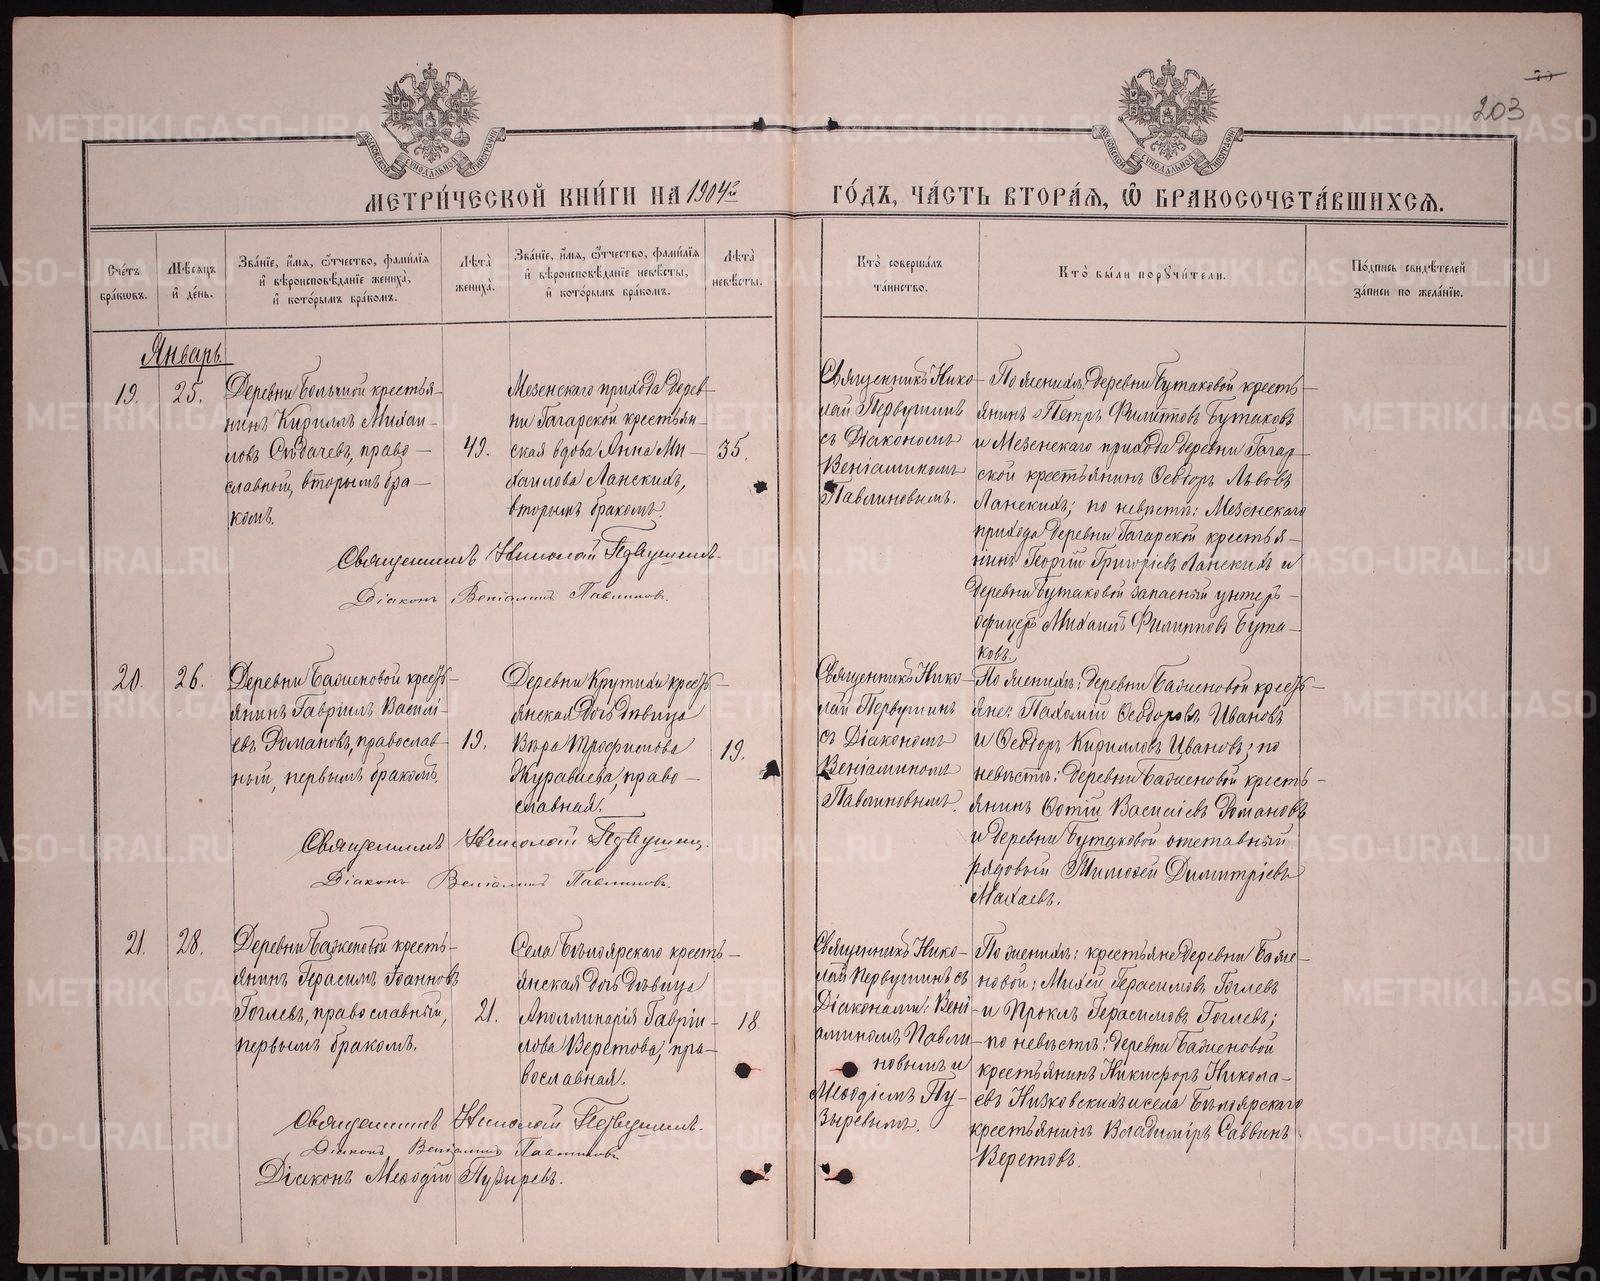 70
203
МЕТРИ́ЧЕСКОЙ КНИ́ГИ НА 1904 г
ГО́ДЪ, ЧА́СТЬ ВТОРА́Я, Ѽ БРАКОСОЧЕТА́ВШИХСЯ.
Сче́тъ бра́ковъ.
Мѣ́сяцъ и҆ де́нь.
Зва́ніе, и҆́мя, ѻ҆́тчество, фами́лія
и҆ вѣроисповѣ́даніе жениха̀,
и҆ кото́рымъ бра́комъ.
Лѣта̀ жениха̀.
Зва́ніе, и҆́мя, ѻ҆́тчество, фами́лія
и҆ вѣроисповѣ́даніе невѣ́сты,
и҆ кото́рымъ бра́комъ.
Лѣта̀ невѣ́сты.
Кто̀ соверша́лъ
та́инство.
Кто̀ бы́ли поручи́тели.
По́дпись свидѣ́телей
за́писи по жела́нію.
Январь.
19.
25.
Деревни Больчной крестья-
нинъ Кириллъ Михаи-
ловъ право-
славный, вторымъ бра-
комъ.
49.
Мезенскаго прихода дерев-
ни Гагарской крестьян-
ская вдова Анна Ми-
хаилова Ланскихъ,
вторымъ бракомъ.
35.
Священникъ Нико-
лай Первушинъ
съ Діакономъ
Веніаминомъ
Павлиновымъ.
По женихѣ: деревни Бутаковой кресть-
янинъ Петръ Филиповъ Бутаковъ
и Мезенскаго прихода деревни Гагар-
ской крестьянинъ Ѳеодоръ Львовъ
Ланскихъ; по невѣстѣ: Мезенскаго
прихода деревни Гагарской крестья-
нинъ Георгій Григоріевъ Ланскихъ и
деревни Бутаковой запасный унтеръ-
офицеръ Михаилъ Филипповъ Бута-
ковъ.
Священникъ Николай Первушинъ.
Діаконъ Веніаминъ Павлиновъ.
20.
26.
Деревни Баженовой крест-
янинъ Гавріилъ Василі-
евъ Романовъ, православ-
ный, первымъ бракомъ.
19.
Деревни Крутихи крест-
янская дочь дѣвица
Вѣра Трофимова
Журавлева, право-
славная.
19.
Священникъ Нико-
лай Первушинъ
съ Діакономъ
Веніаминомъ
Павлиновымъ.
По женихѣ: деревни Баженовой крест-
яне: Пахомій Ѳеодоровъ Ивановъ
и Ѳеодоръ Кирилловъ Ивановъ; по
невѣстѣ: деревни Баженовой кресть-
янинъ Фотій Василіевъ Романовъ
и деревни Бутаковой отставный
рядовый Тимоѳей Димитріевъ
Махаевъ.
Священникъ Николай Первушинъ.
Діаконъ Веніаминъ Павлиновъ.
21.
28.
Деревни Баженовой кресть-
янинъ Герасимъ Іоанновъ
Гоглевъ, православный,
первымъ бракомъ.
21.
Села Бѣлоярскаго кресть-
янская дочь дѣвица
Аполлинарія Гавріи-
лова Веретова, пра-
вославная.
18.
Священникъ Нико-
лай Первушинъ съ
Діаконами: Вені-
аминомъ Павли-
новымъ и
Меѳодіемъ Пу-
зыревымъ.
По женихѣ: крестьяне деревни Баже-
новой: Михей Герасимовъ Гоглевъ
и Проклъ Герасимовъ Гоглевъ;
по невѣстѣ: деревни Баженовой
крестьянинъ Никифоръ Никола-
евъ Низковскихъ и села Бѣлоярскаго
крестьянинъ Владиміръ Саввинъ
Веретовъ.
Священникъ Николай Первушинъ.
Діаконъ Веніаминъ Павлиновъ
Діаконъ Меѳодій Пузыревъ.